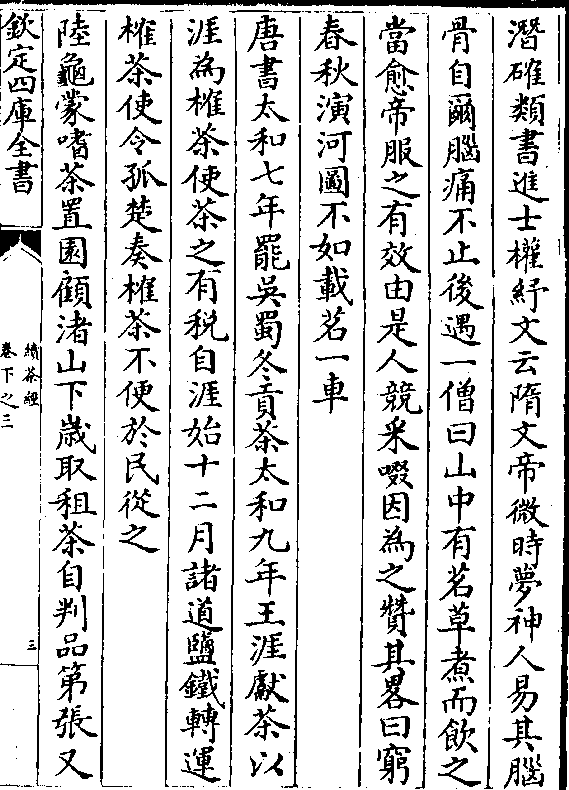 潛確類書進士權紓文云隋文帝微時夢神人易其腦
骨自爾腦痛不止後遇一僧曰山中有茗草煮而飲之
當愈帝服之有效由是人競采啜因為之贊其畧曰窮
春秋演河圖不如載茗一車
唐書太和七年罷吳蜀冬貢茶太和九年王涯獻茶以
涯為榷茶使茶之有稅自涯始十二月諸道鹽鐵轉運
榷茶使令孤楚奏榷茶不便於民從之
陸龜蒙嗜茶置園顧渚山下歲取租茶自判品第張又
欽定四庫全書
續茶經
卷下之三
三